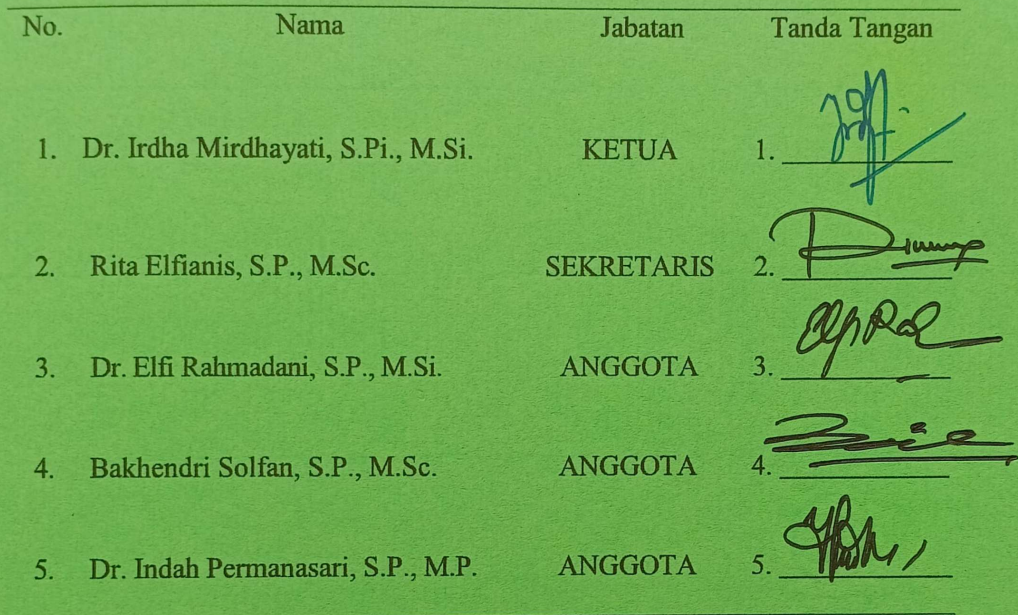 No. Nama Jabatan Tanda Tangan
1. Dr. Irdha Mirdhayati, S.Pi., M.Si. KETUA 1.
2. Rita Elfianis, S.P., M.Sc. SEKRETARIS 2.
3. Dr. Elfi Rahmadani, S.P., M.Si. ANGGOTA 3.
4. Bakhendri Solfan, S.P., M.Sc. ANGGOTA 4.
5. Dr. Indah Permanasari, S.P., M.P. ANGGOTA 5.